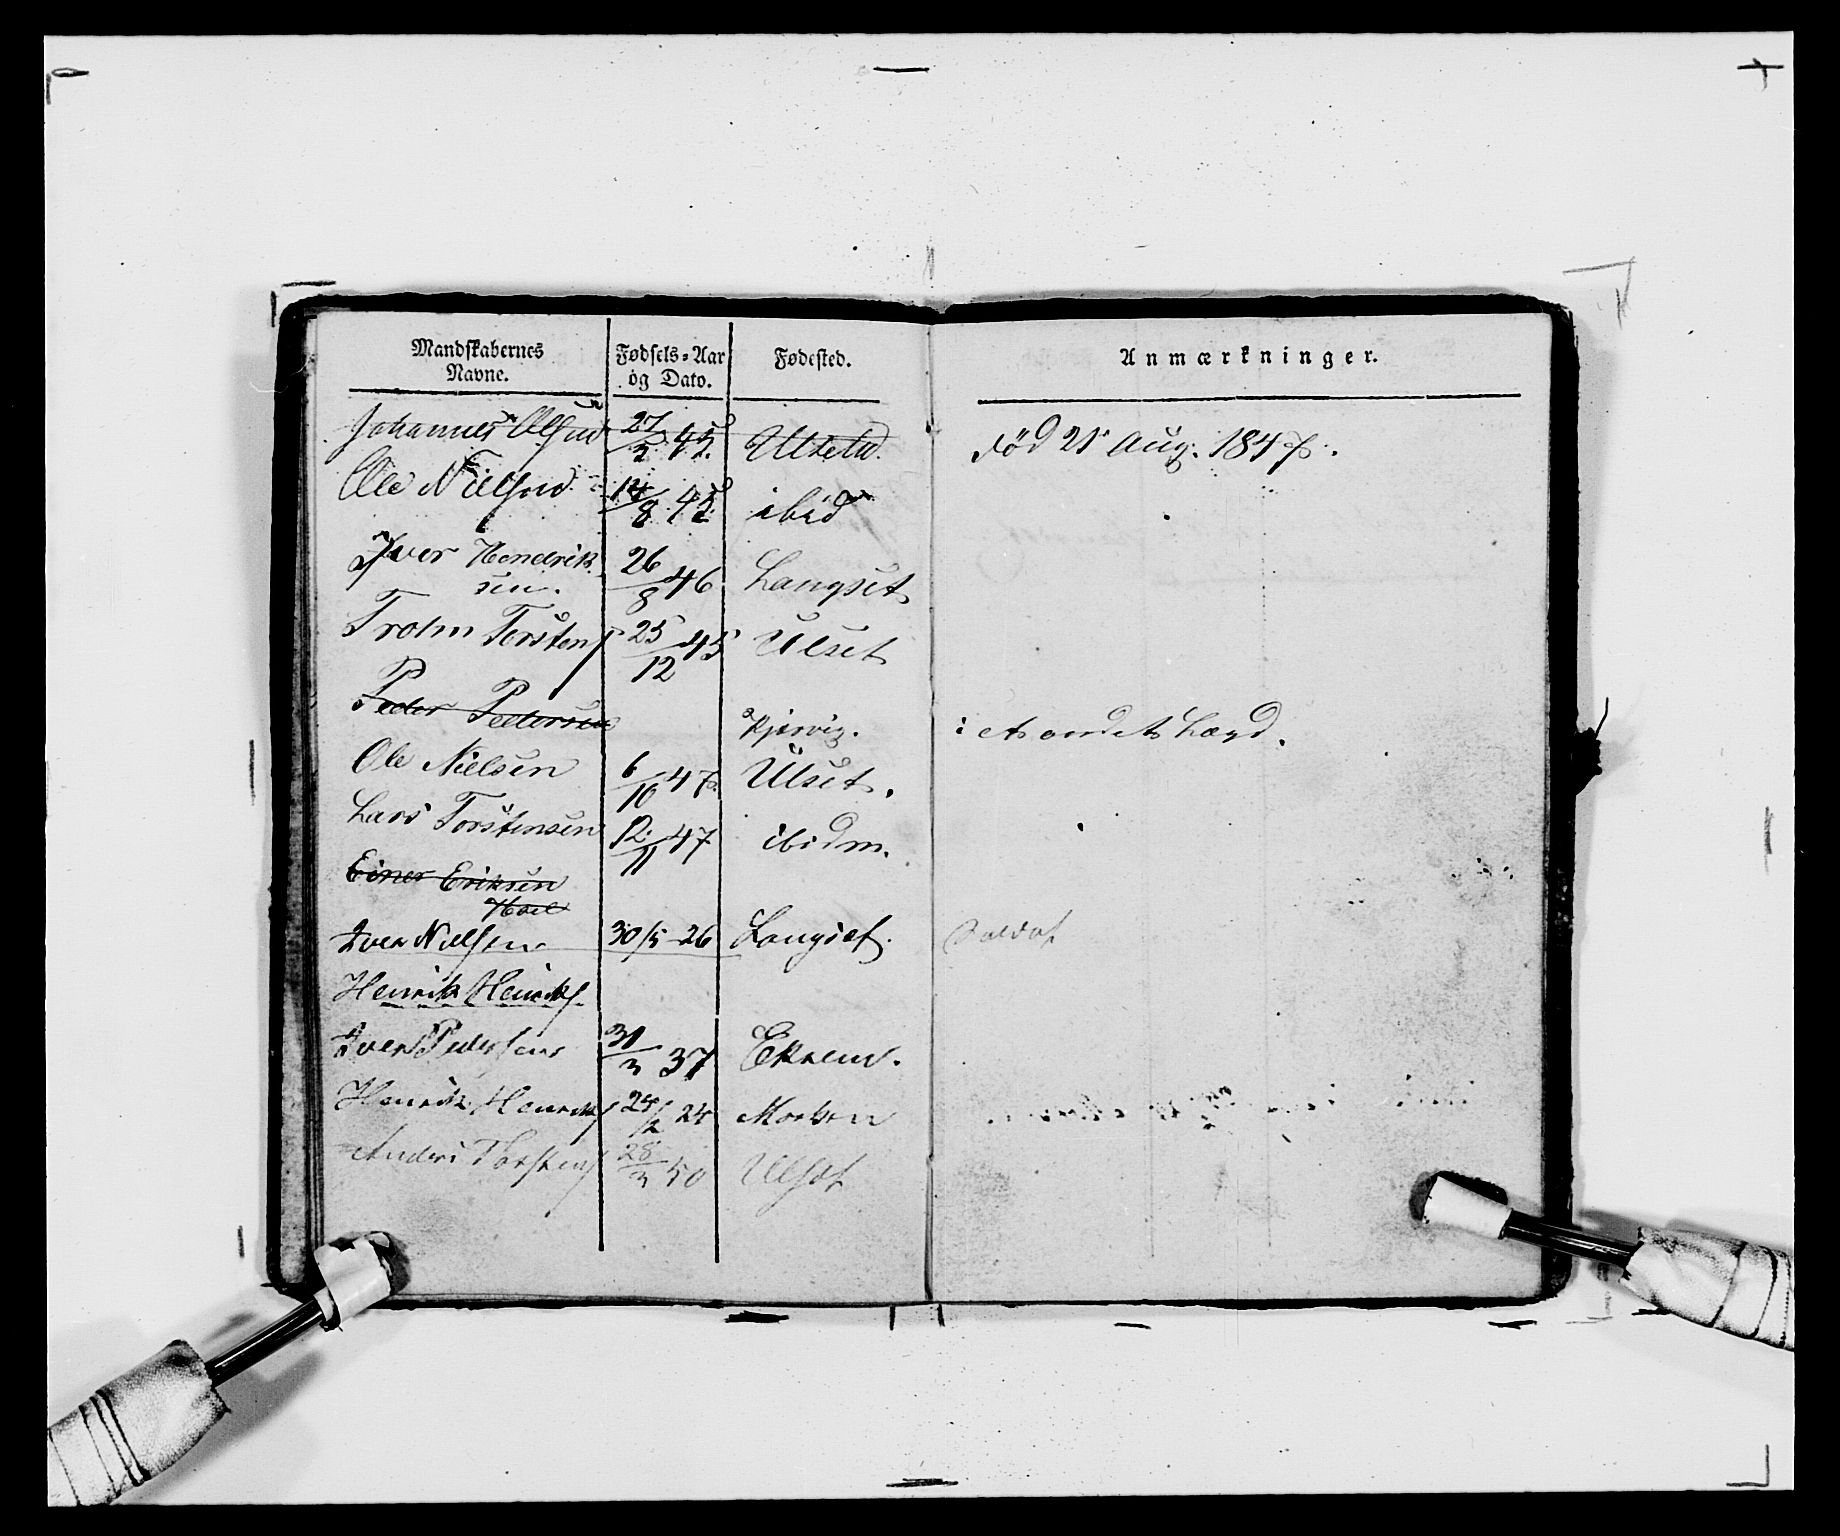 Mandskabernes Navne. Fødsels=Aar og Dato. Fødested. Anmærkninger.
Johannes Olsen 27/2 45 Ulset Død 21 Aug. 1847.
Ole Nielsen 14/8 45 ibid
Iver Hendrik
sen. 26/8 46 Langset
Trohn Torstens 25/12 45 Ulset
Peder Pedersen Kjørvig. i et andet Lægd.
Ole Nielsen 6/10 47 Ulset.
Lars Torstensen 12/11 47 ibidm.
Einer Eriksen
Hoel
Iver Nielsen 30/5 26 Langset. Soldat
Henrik Henriks.
Iver Pedersen 31/3 37 Ekrem.
Henrik Henriks 24/12 24
Anders Torstens 28/3 50 Ulset